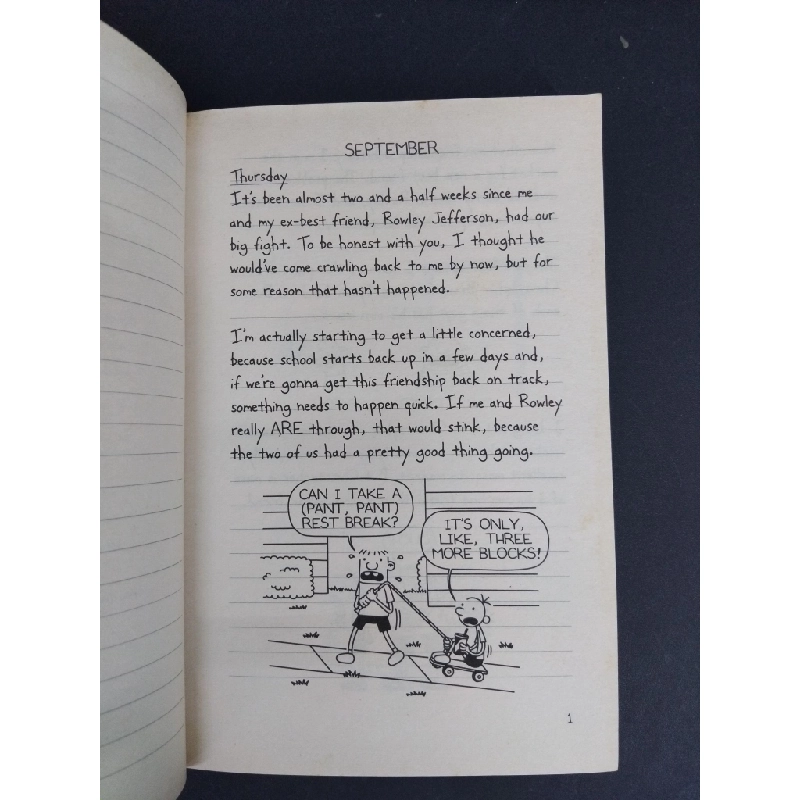 SEPTEMBER
Thursday
It's been almost two and a half weeks since me
and my ex-best friend, Rowley Jefferson, had our
big fight. To be honest with you, I thought he
would've come crawling back to me by now, but for
some reason that hasn't happened.
I'm actually starting to get a little concerned,
because school starts back up in a few days and,
if we're gonna get this friendship back on track,
something needs to happen quick. If me and Rowley
really ARE through, that would stink, because
the two of us had a pretty good thing going.
CAN I TAKE A
(PANT, PANT)
REST BREAK?
IT'S ONLY,
LIKE, THREE
MORE BLOCKS!
1